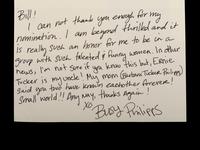 Bill!
I can not thank you enough for my
nomination. I am beyond thrilled and it
is really such an honor for me to be in a
group with such talented & funny women. In other
news, I'm not sure if you know this but, Ernie
Tucker is my uncle! My mom (Barbara Tucker Philipps)
said you two have known eachother forever!
Small world!! Anyway, thanks Again!
XO
Busy Philipps